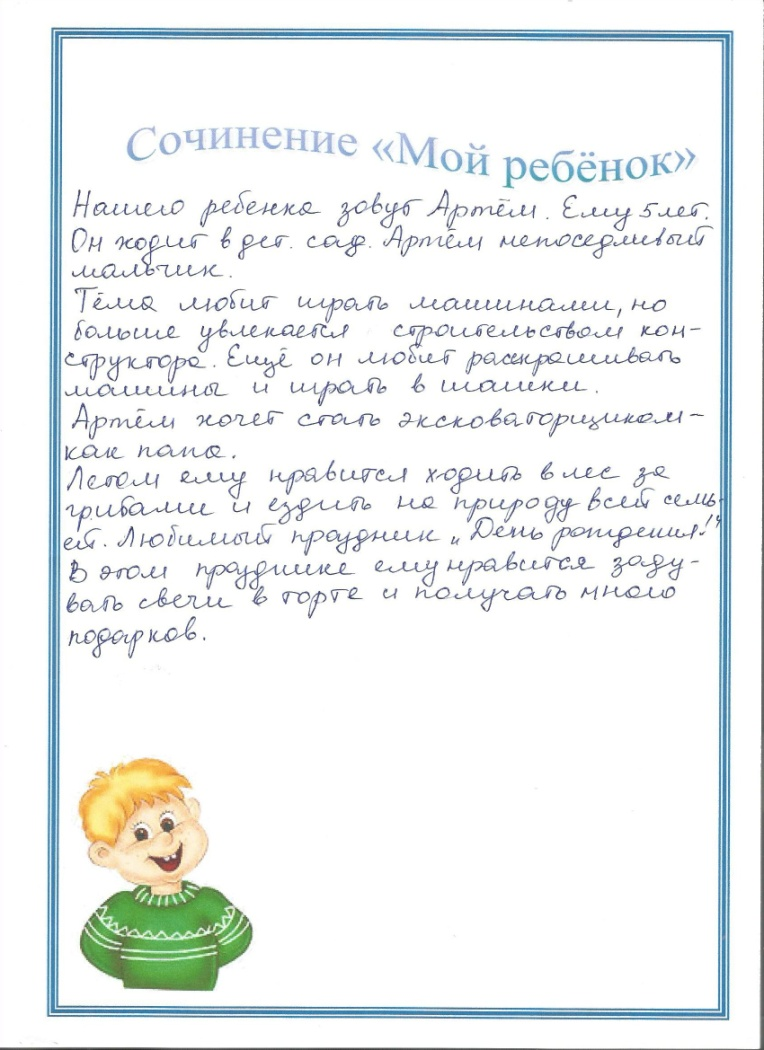 Сочинение «Мой ребёнок»
Нашего ребенка зовут Артём. Ему 5 лет.
Он ходит в дет. сад. Артём непоседливый
мальчик.
Тёма любит играть машинами, но
больше увлекается строительством кон-
структора. Ещё он любит раскрашивать
машины и играть в шашки.
Артём хочет стать эксковаторщиком-
как папа.
Летом ему нравится ходить в лес за
грибами и ездить на природу всей семь-
ей. Любимый праздник „День рождения!“
В этом празднике ему нравится заду-
вать свечи в торте и получать много
подарков.